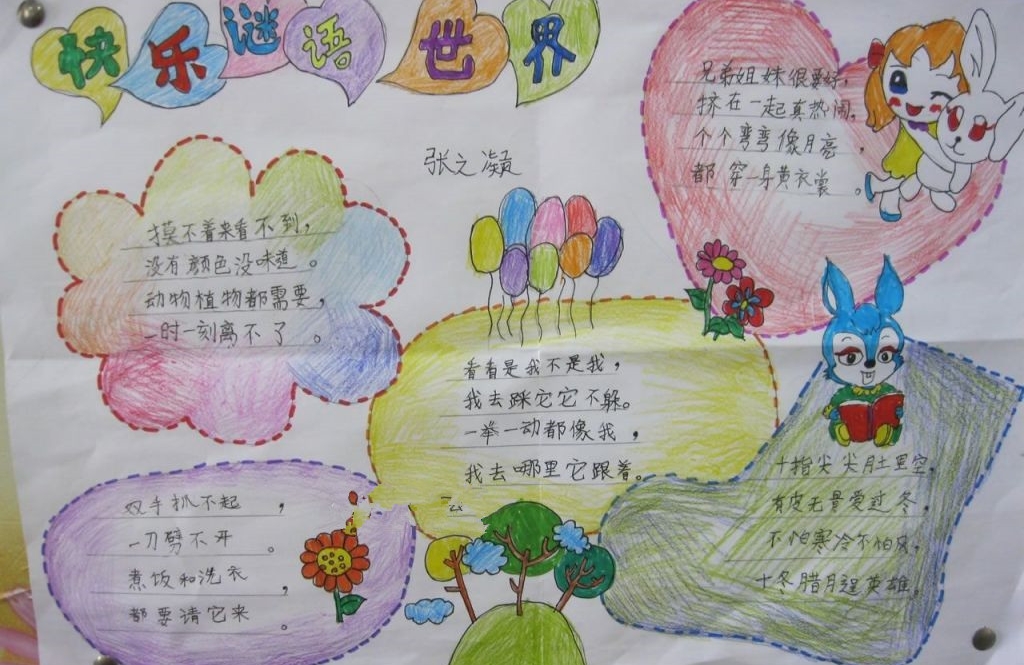 快乐谜语世界
张之凝
兄弟姐妹很要好,
挤在一起真热闹。
个个弯弯像月亮,
都穿一身黄衣裳。
摸不着来看不到,
没有颜色没味道。
动物植物都需要,
一时一刻离不了。
看看是我不是我,
我去踩它它不躲。
一举一动都像我,
我去哪里它跟着。
双手扒不起,
一刀劈不开。
煮饭和洗衣,
都要请它来。
十指尖尖肚里空,
有皮无骨爱过冬,
不怕寒冷不怕风,
十冬腊月逞英雄。